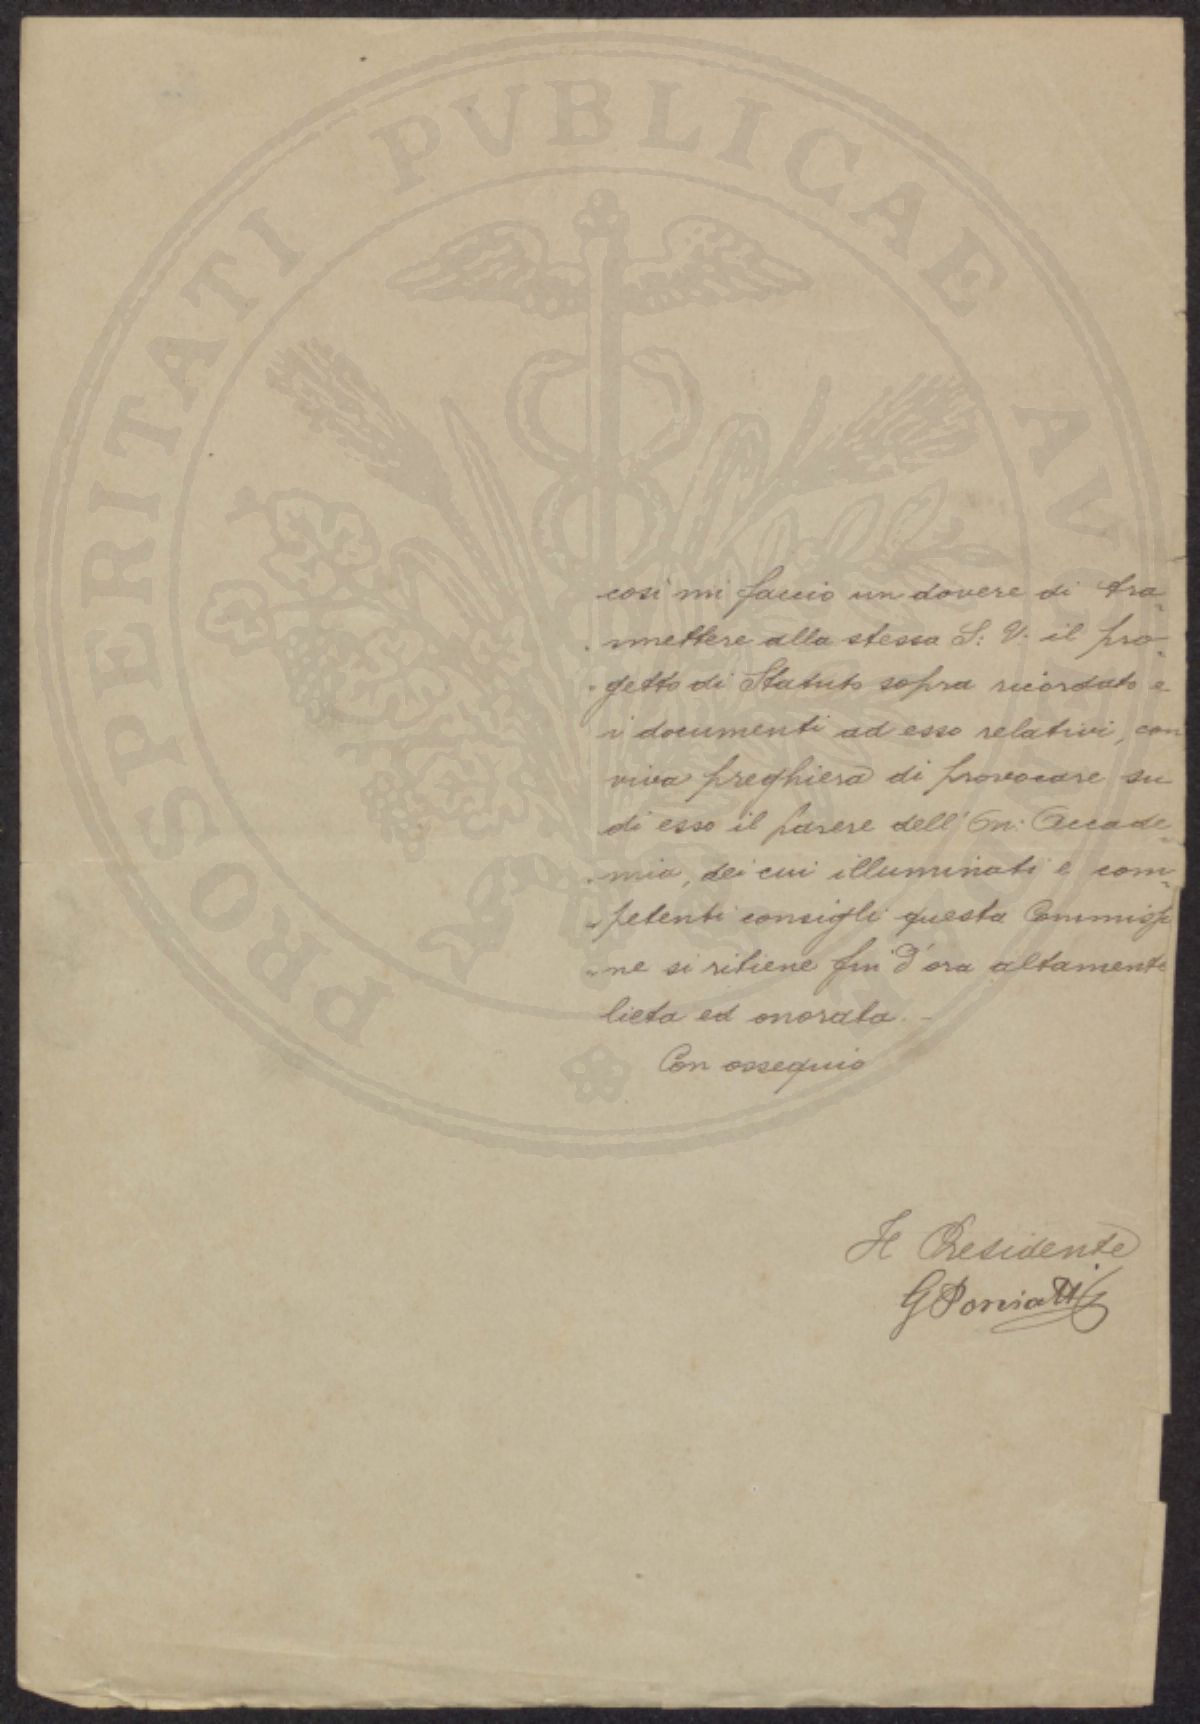 PROSPERITATI PVBLICAE AVGENDAE
così mi faccio un dovere di tra-
smettere alla stessa S: V: il pro-
getto di Statuto sopra ricordato e
i documenti ad esso relativi, con
viva preghiera di provocare su
di esso il parere dell' On: Accade-
mia, dei cui illuminati e com-
petenti consigli questa Commissio
ne si ritiene fin d'ora altamente
lieta ed onorata. -
Con ossequio
Il Presidente
G